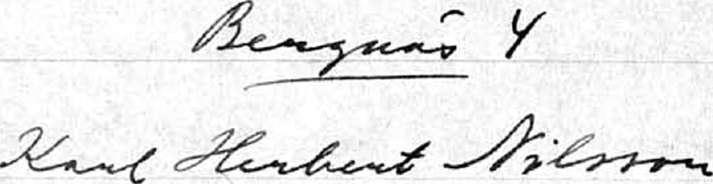 Bergnäs 4
Karl Herbert Nilsson